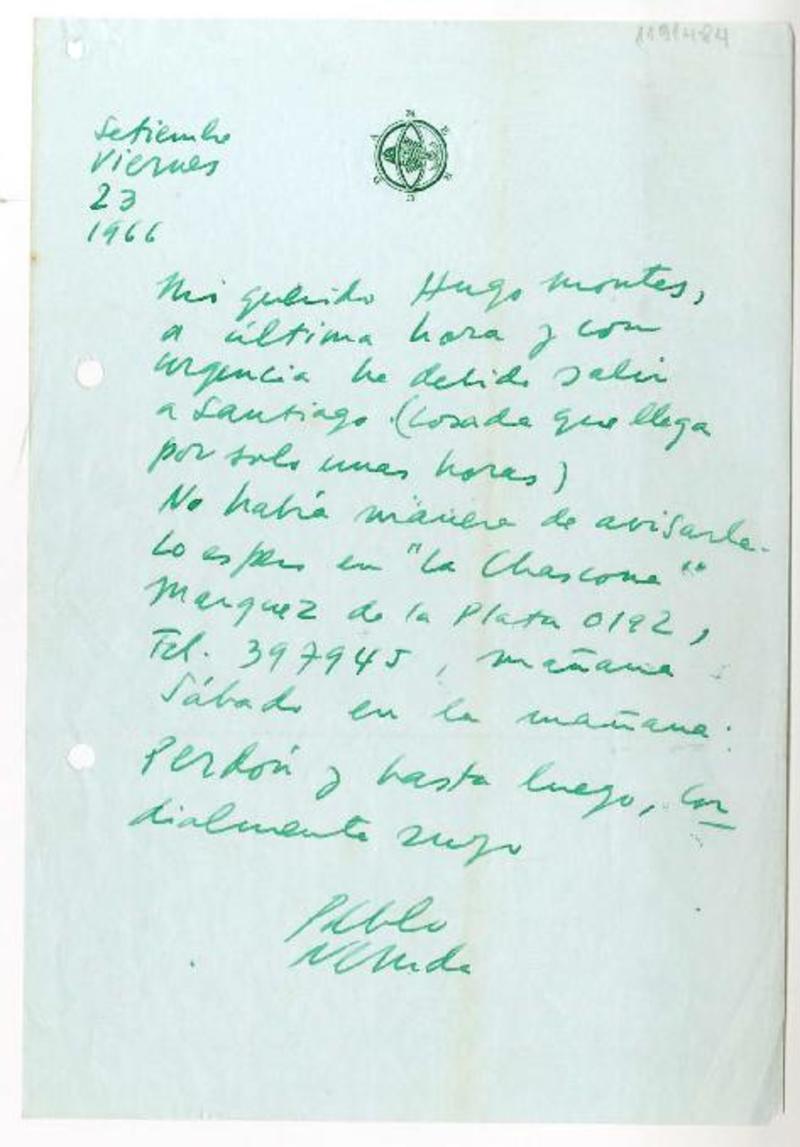 1191484
Setiembre
Viernes
23
1966
Mi querido Hugo Montes,
a última hora y con
urgencia he debido salir
a Santiago (Losada que llega
por solo unas horas)
No había manera de avisarle.
Lo espero en "La Chascona"
Marquez de la Plata 0192,
Tel. 397945, mañana
Sábado en la mañana.
Perdón y hasta luego, cor
dialmente suyo
Pablo
Neruda